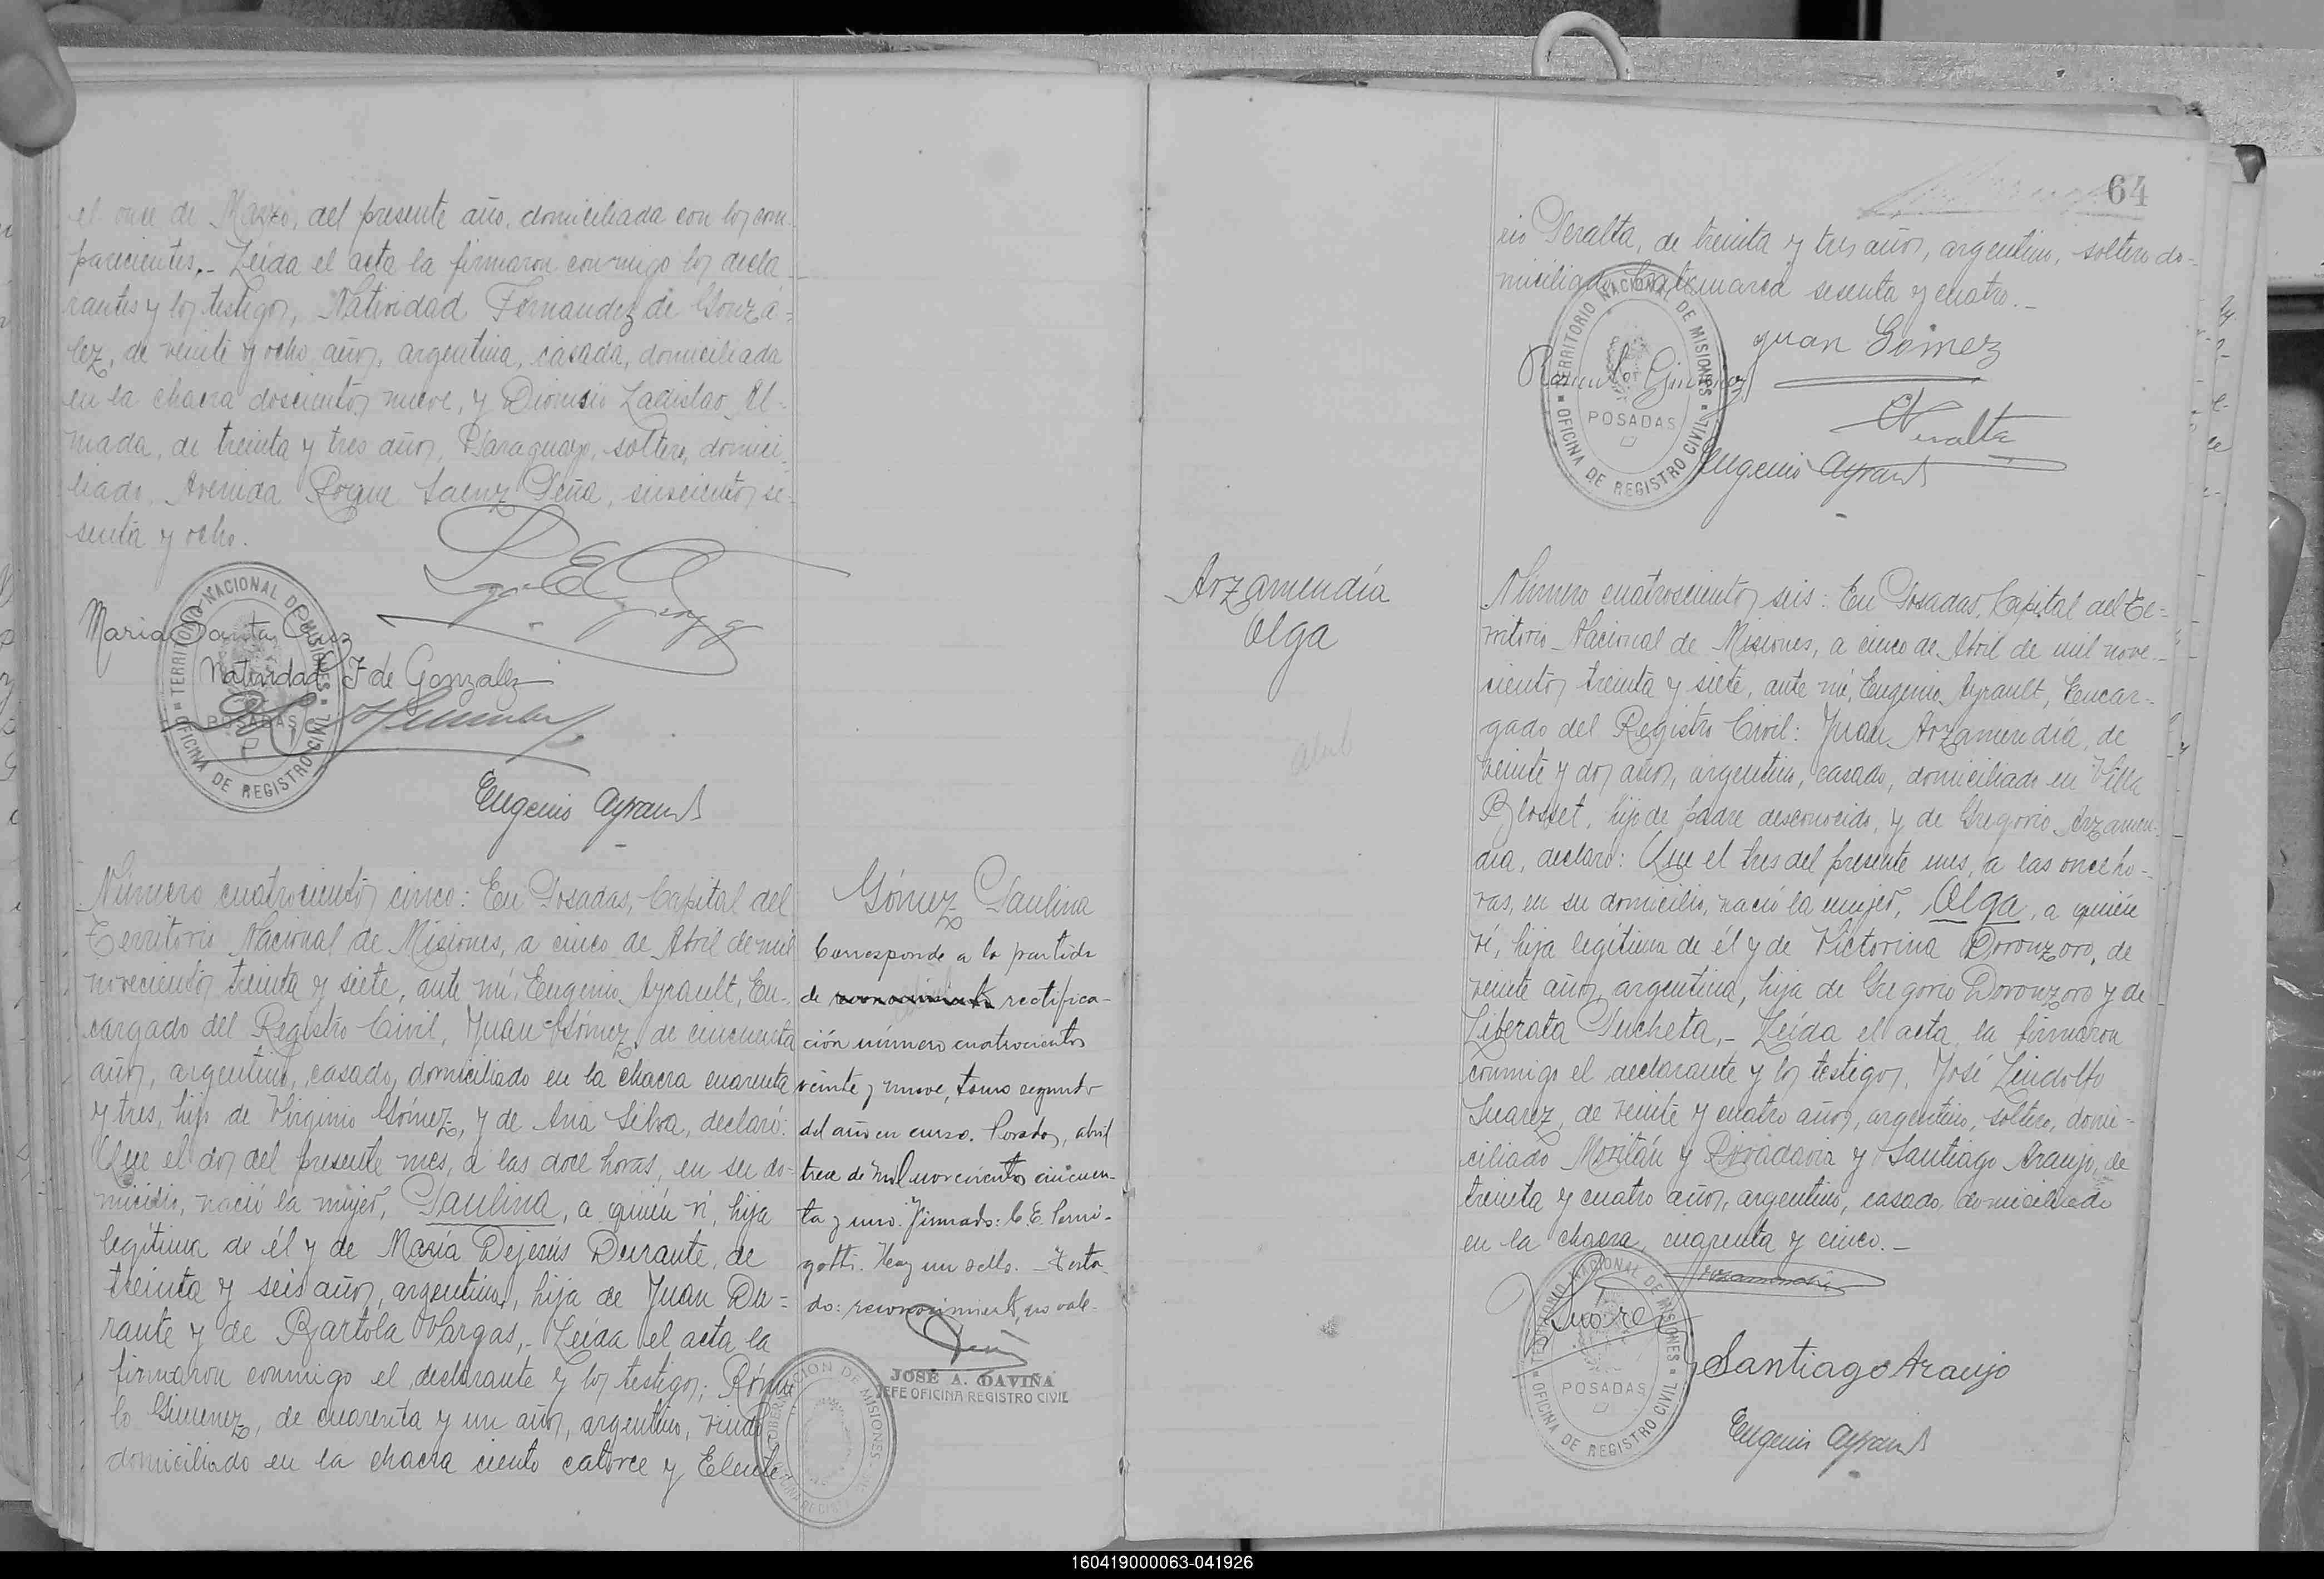 el once de Marzo, del presente año, domiciliada con los com-
parecientes.- Leída el acta la firmaron conmigo los decla-
rantes y los testigos, Natividad Fernandez de Gonzá-
lez, de veinte y ocho años, argentina, casada, domiciliada
en la chacra doscientos nueve, y Dionisio Ladislao Al-
mada, de treinta y tres años, Paraguayo, soltero, domici-
liado Avenida Roque Saenz Peña, seiscientos se-
senta y ocho.
Maria Santa Cruz
Natividad F de Gonzalez
TERRITORIO NACIONAL DE MISIONES
POSADAS
OFICINA DE REGISTRO CIVIL
Eugenio Ayrault
Número cuatrocientos cinco: En Posadas, Capital del
Territorio Nacional de Misiones, a cinco de Abril de mil
novecientos treinta y siete, ante mí, Eugenio Ayrault, En-
cargado del Registro Civil, Juan Gómez, de cincuenta
años, argentino, casado, domiciliado en la chacra cuarenta
y tres, hijo de Virginio Gómez, y de Ana Silva, declaró:
Que el dos del presente mes, a las doce horas, en su do-
micilio, nació la mujer, Paulina, a quién ví, hija
legítima de él y de María Dejesús Durante, de
treinta y seis años, argentina, hija de Juan Du-
rante y de Bartola Vargas,- Leída el acta la
firmaron conmigo el declarante y los testigos; Rómu
lo Gimenez, de cuarenta y un años, argentino, viudo,
domiciliado en la chacra ciento catorce y Eleute
Gómez Paulina
Corresponde a la partida
de reconocimiento rectifica-
ción número cuatrocientos
veinte y nueve, tomo segundo
del año en curso. Posadas, abril
trece de mil novecientos cincuen-
ta y uno. Firmado: C. E. Perni-
gotti. Hay un sello. - Testa-
do: reconocimiento, no vale.
JOSÉ A. GAVIÑA
JEFE OFICINA REGISTRO CIVIL
GOBERNACION DE MISIONES
64
rio Peralta, de treinta y tres años, argentino, soltero do-
miciliado Catamarca sesenta y cuatro.-
Juan Gómez
Romulo Gimenez
Peralta
TERRITORIO NACIONAL DE MISIONES
POSADAS
OFICINA DE REGISTRO CIVIL
Eugenio Ayrault
Arzamendia
Olga
Número cuatrocientos seis: En Posadas, Capital del Te-
rritorio Nacional de Misiones, a cinco de Abril de mil nove-
cientos treinta y siete, ante mí, Eugenio Ayrault, Encar-
gado del Registro Civil: Juan Arzamendia, de
veinte y dos años, argentino, casado, domiciliado en Villa
Blosset, hijo de padre desconocido, y de Gregoria Arzamen-
dia, declaró: Que el tres del presente mes, a las once ho-
ras, en su domicilio, nació la mujer, Olga, a quién
ví, hija legítima de él y de Victorina Doronzoro, de
veinte años, argentina, hija de Gregorio Doronzoro y de
Liberata Pucheta,- Leída el acta, la firmaron
conmigo el declarante y los testigos, José Lindolfo
Suarez, de veinte y cuatro años, argentino, soltero, domi-
ciliado Moritán y Rivadavia y Santiago Araujo, de
treinta y cuatro años, argentino, casado, domiciliado
en la chacra, cuarenta y cinco.-
Arzamendia
Suárez
TERRITORIO NACIONAL DE MISIONES
POSADAS
OFICINA DE REGISTRO CIVIL
Santiago Araujo
Eugenio Ayrault
160419000063-041926